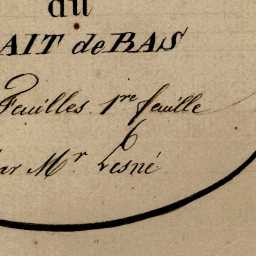 du
AIT de BAS
Feuilles. 1re feuille
ar Mr Lesné